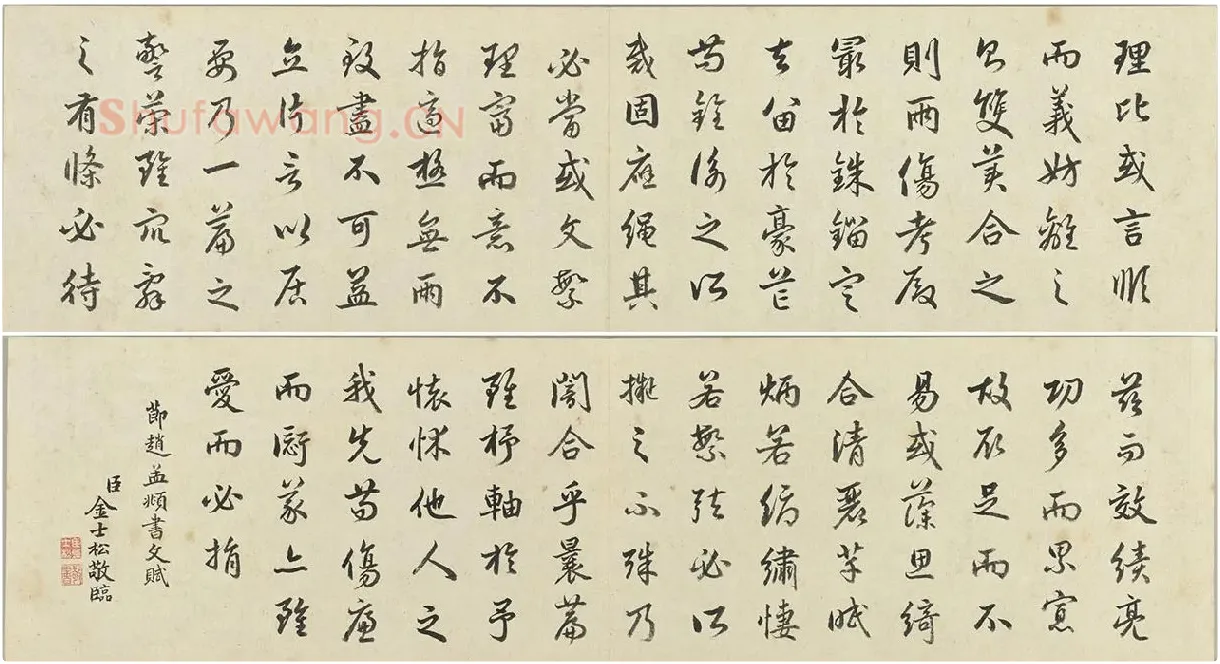 理比或言順
而義妨離之
則雙美合之
則兩傷考殿
最於銖錙定
去留於豪芒
苟銓衡之所
裁固應繩其
必當或文繁
理富而意不
指適極無兩
致盡不可益
立片言以居
要乃一篇之
警策雖眾辭
之有條必待
Shufawang.CN
茲而效績亮
功多而累寡
故取足而不
易或藻思綺
合清麗芊眠
炳若縟繡悽
若繁絃必所
擬之不殊乃
闇合乎曩篇
雖杼軸於予
懷怵他人之
我先苟傷廉
而愆義亦雖
愛而必捐
節趙孟頫書文賦
臣金士松敬臨